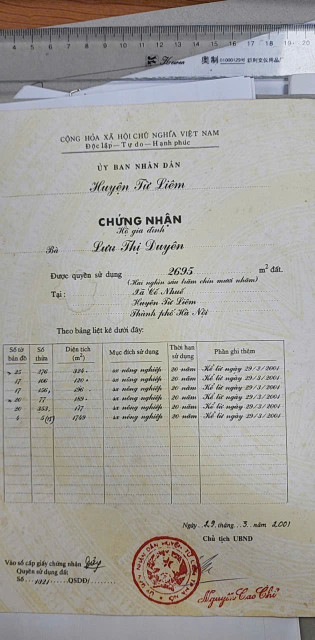 CỘNG HÒA XÃ HỘI CHỦ NGHĨA VIỆT NAM
Độc lập — Tự do — Hạnh phúc
ỦY BAN NHÂN DÂN
Huyện Từ Liêm
CHỨNG NHẬN
Hộ gia đình
Bà Lưu Thị Duyên
Được quyền sử dụng 2695 m² đất.
(Hai nghìn sáu trăm chín mươi nhăm)
Tại : Xã Cổ Nhuế
Huyện Từ Liêm
Thành phố Hà Nội
Theo bảng liệt kê dưới đây:
Số tờ bản đồ Số thửa Diện tích (m²) Mục đích sử dụng Thời hạn sử dụng Phần ghi thêm
25 376 334 sx nông nghiệp 20 năm Kể từ ngày 29/3/2001
17 166 120 sx nông nghiệp 20 năm Kể từ ngày 29/3/2001
17 156 196 sx nông nghiệp 20 năm Kể từ ngày 29/3/2001
20 77 189 sx nông nghiệp 20 năm Kể từ ngày 29/3/2001
20 353 177 sx nông nghiệp 20 năm Kể từ ngày 29/3/2001
4 1749 sx nông nghiệp 20 năm Kể từ ngày 29/3/2001
Ngày 29 tháng 3 năm 2001
Chủ tịch UBND
Vào sổ cấp giấy chứng nhận
Quyền sử dụng đất
Số 1321 QSDĐ/
Nguyễn Cao Chí